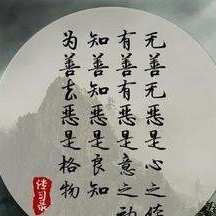 无善无恶是心之体
有善有恶是意之动
知善知恶是良知
为善去恶是格物
传习录